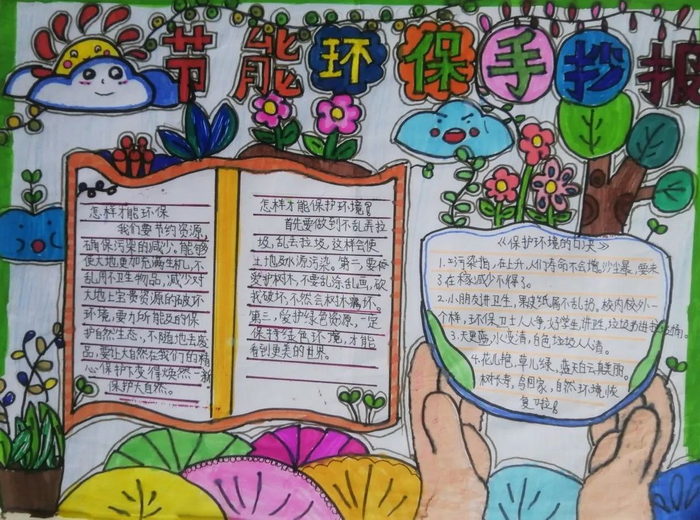 节能环保手抄报
怎样才能环保
我们要节约资源,
确保污染的减少。能够
使大地更加充满生机,不
乱用不卫生物品,减少对
大地上宝贵资源的破坏
环境,要力所能及的保
护自然生态,不随地丢废
品,要让大自然在我们的精
心保护下变得焕然一新
保护大自然。
怎样才能保护环境
首先要做到不乱弄拉
圾,乱去拉圾,这样会使
土地及水源污染。第二,要
爱护树木,不要乱涂乱画,砍
我破坏,不然会树木
第三,爱护绿色资源,一定
保持绿色环境,才能
看到更美的世界。
《保护环境的口诀》
污染指,在上升,人们寿命不会增,沙尘暴,要来
3在稼减少不得了。
2.小朋友讲卫生,果皮纸屑不乱扔。校内校外一
个样,环保卫士人人争,好学生,讲
3.天更蓝,小更清,白色垃圾人人清。
4.花儿艳,草儿绿,蓝天白云真美丽。
树长寿,鸟回家,自然环境恢
复啦